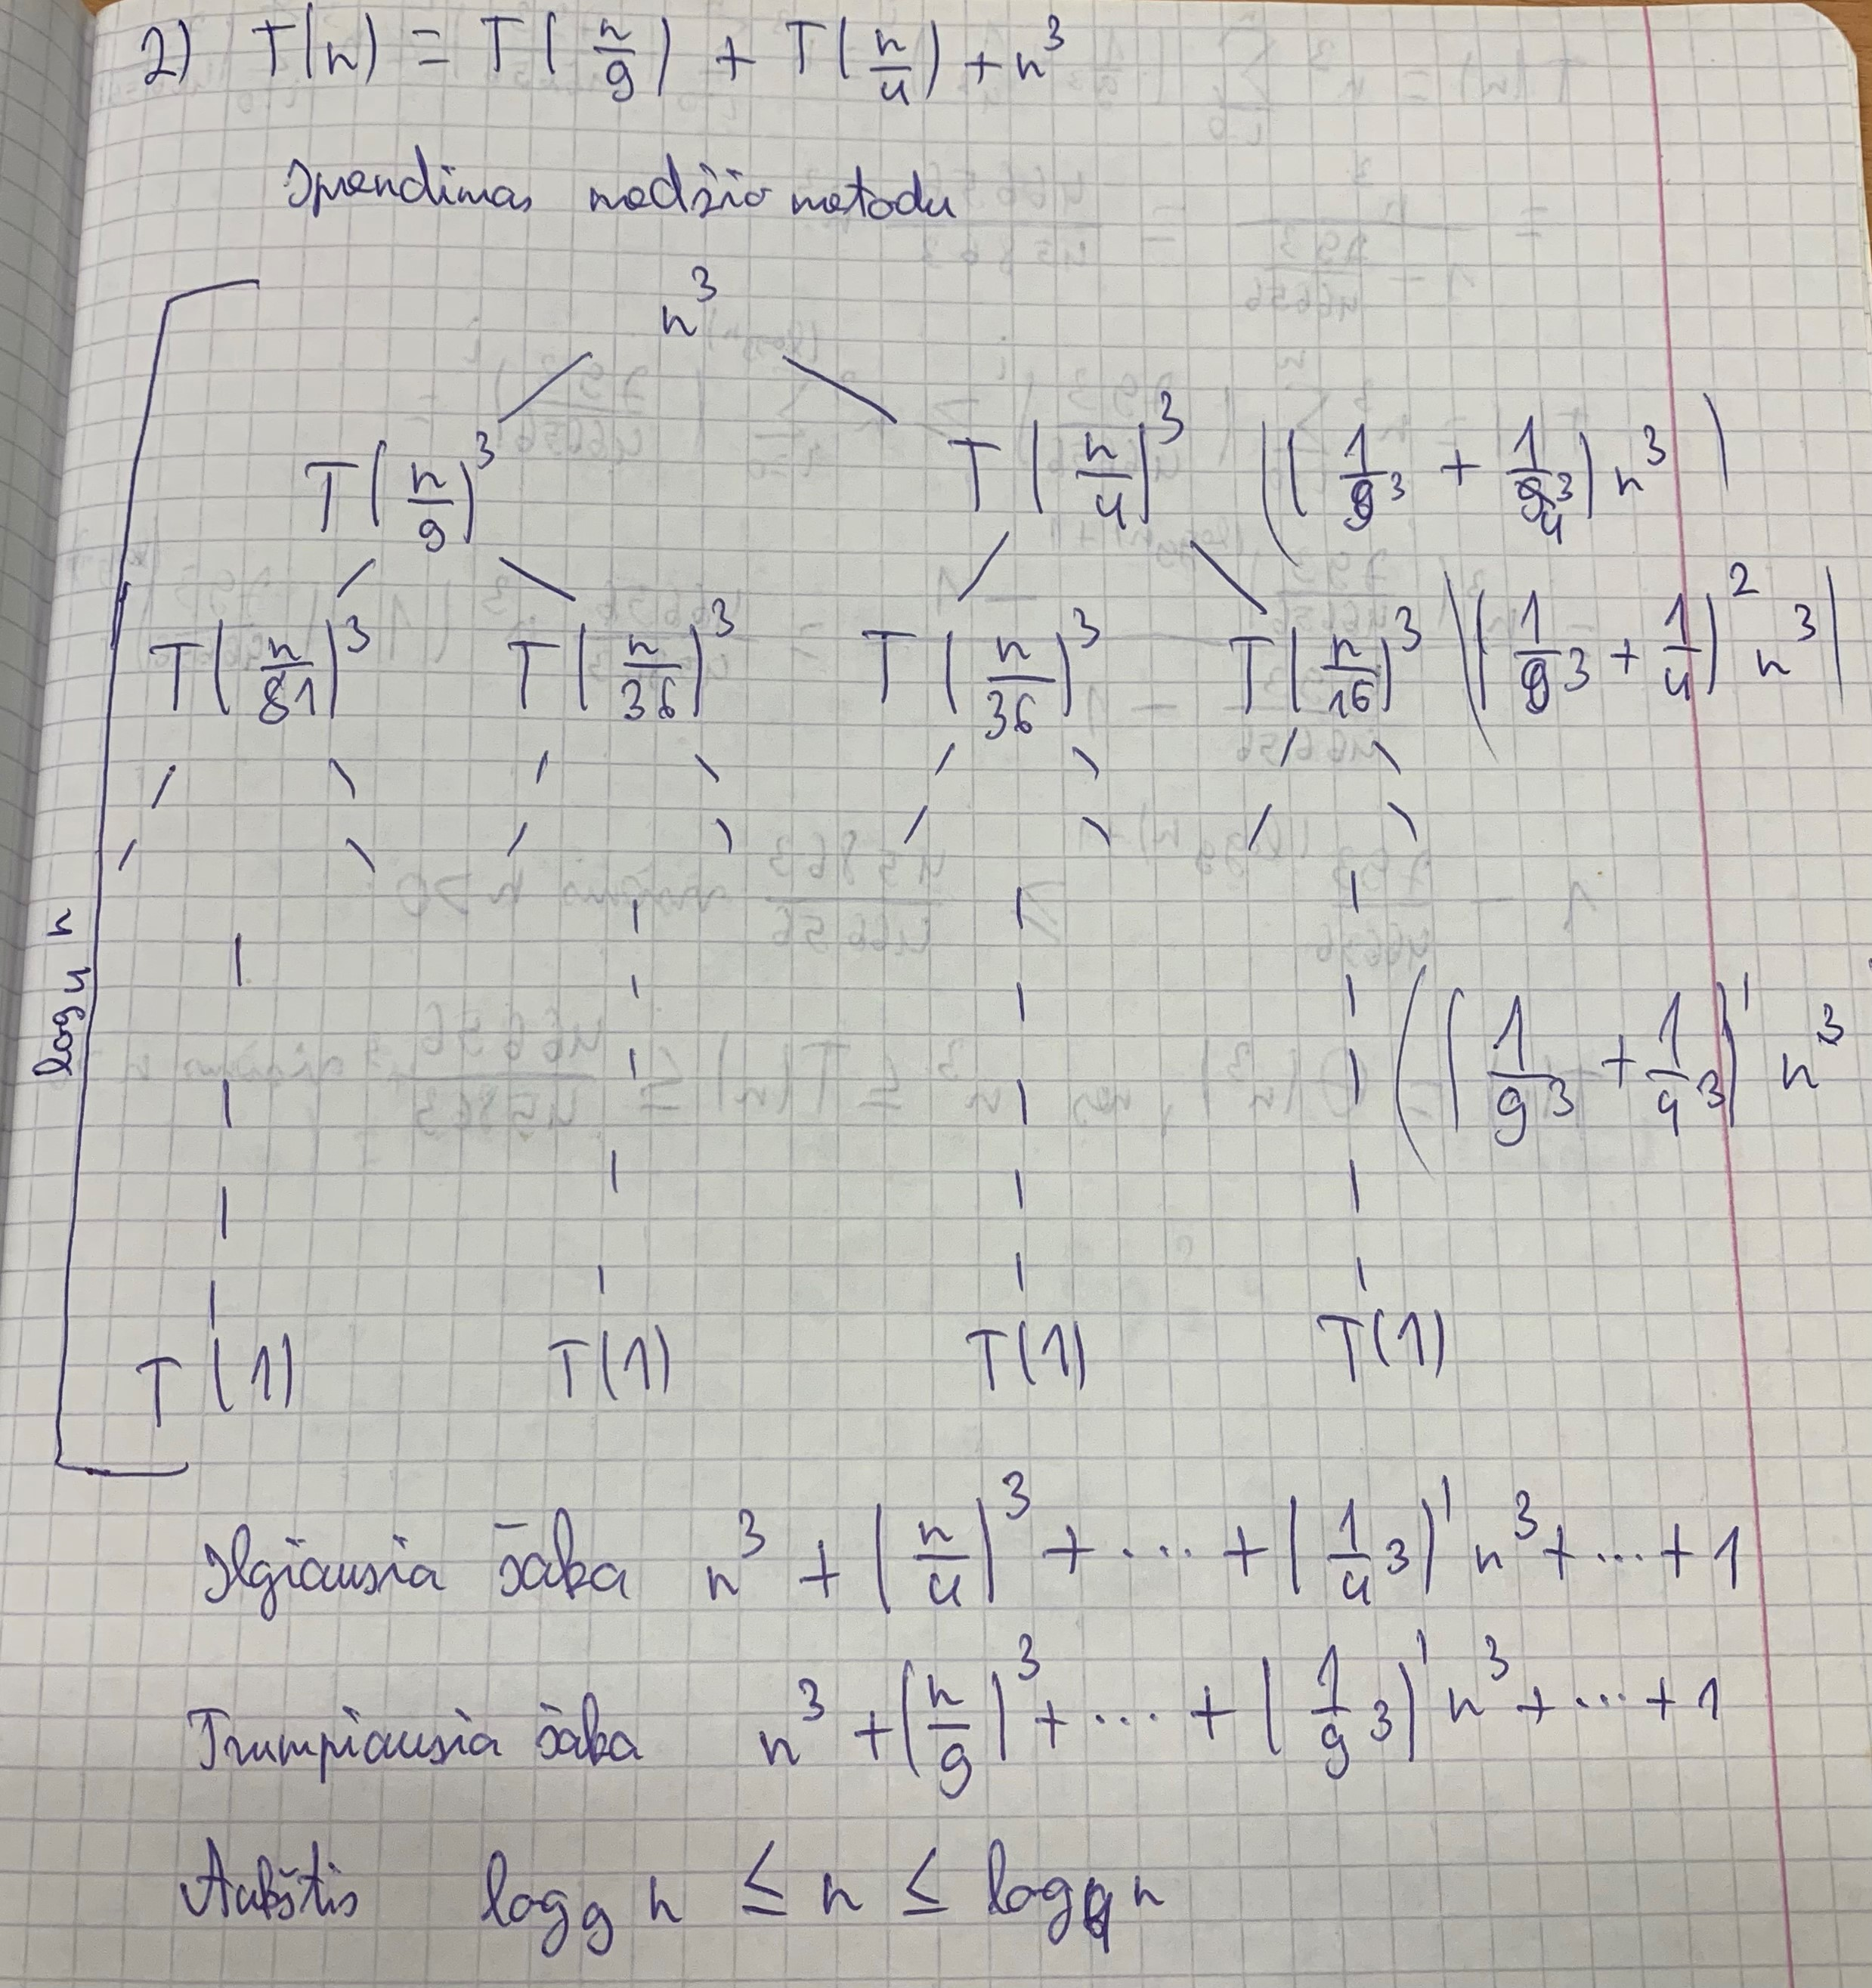 2) T(n) = T(n/9) + T(n/4) + n³
Sprendimas medžio metodu
n³
T(n/9)³ T(n/4)³ ((1/9³ + 1/4³) n³)
T(n/81)³ T(n/36)³ T(n/36)³ T(n/16)³ ((1/9³ + 1/4)² n³)
log₄ n
((1/9³ + 1/4³)ⁱ n³
T(1) T(1) T(1) T(1)
Ilgiausia šaka n³ + (n/4)³ + ... + (1/4³)ⁱ n³ + ... + 1
Trumpiausia šaka n³ + (n/9)³ + ... + (1/9³)ⁱ n³ + ... + 1
Aukštis log₉ n ≤ n ≤ log₄ n